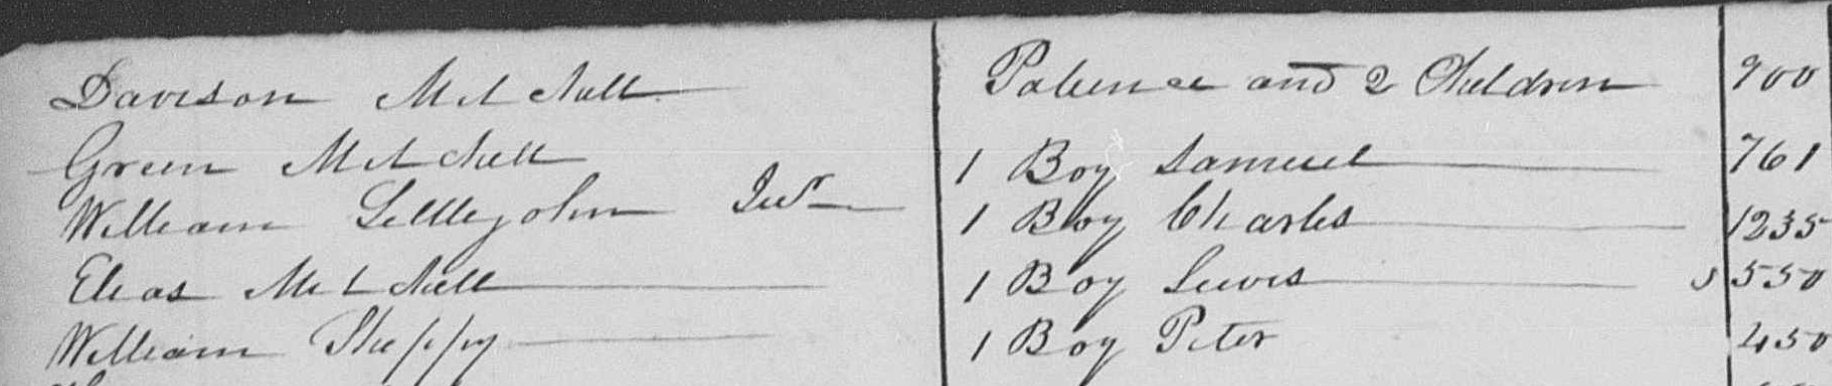 Davison Mitchell Patience and 2 Children 900
Green Mitchell 1 Boy Samuel 761
William Littlejohn Junr 1 Boy Charles 1235
Elias Mitchell 1 Boy Lewis 550
William Sheppy 1 Boy Peter 450